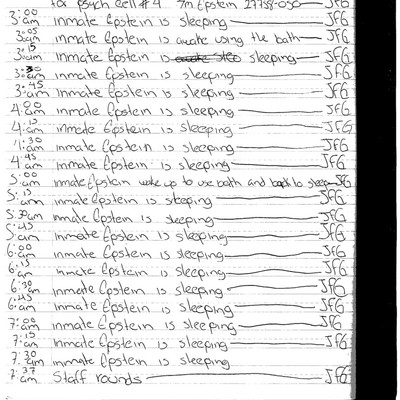 for psych cell #4 Im Epstein 27758-050 JFG
3:00 am inmate Epstein is sleeping JFG
3:05 am inmate Epstein is awake using the bath JFG
3:15 am inmate Epstein is sleeping JFG
3:30 am inmate Epstein is sleeping JFG
3:45 am inmate Epstein is sleeping JFG
4:00 am inmate Epstein is sleeping JFG
4:15 am inmate Epstein is sleeping JFG
4:30 am inmate Epstein is sleeping JFG
4:45 am inmate Epstein is sleeping JFG
5:00 am inmate Epstein woke up to use bath and back to sleep JFG
5:15 am inmate Epstein is sleeping JFG
5:30 am inmate Epstein is sleeping JFG
5:45 am inmate Epstein is sleeping JFG
6:00 am inmate Epstein is sleeping JFG
6:15 am inmate Epstein is sleeping JFG
6:30 am inmate Epstein is sleeping JFG
6:45 am inmate Epstein is sleeping JFG
7:00 am inmate Epstein is sleeping JFG
7:15 am inmate Epstein is sleeping JFG
7:30 am inmate Epstein is sleeping
7:37 am Staff rounds JFG